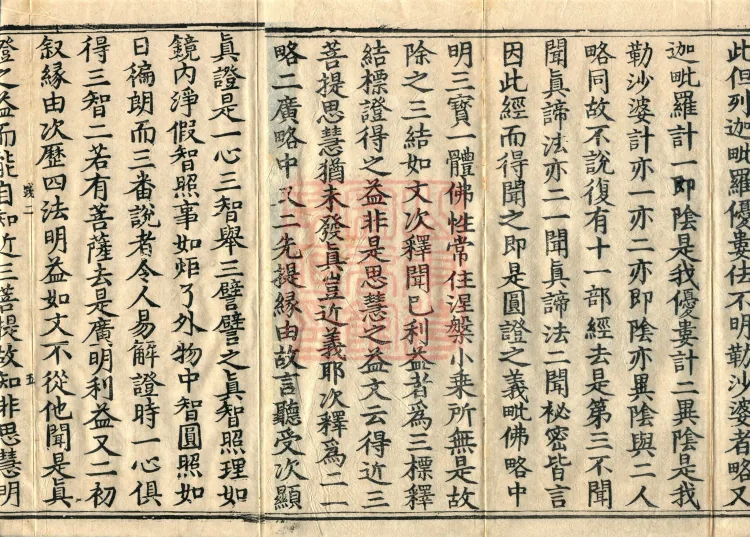 此但列迦毗羅優婁佉不明勒沙婆者略又
迦毗羅計一即陰是我優婁計二異陰是我
勒沙婆計亦一亦二亦即陰亦異陰與二人
略同故不說復有十一部經去是第三不聞
聞真諦法亦二一聞真諦法二聞祕密皆言
因此經而得聞之即是圓證之義毗佛略中
明三寶一體佛性常住涅槃小乗所無是故
除之三結如文次釋聞已利益者為三標釋
結標證得之益非是思慧之益文云得近三
菩提思慧猶未發真豈近義耶次釋為二一
略二廣略中又二先提緣由故言聽受次顯
真證是一心三智舉三譬譬之真智照理如
鏡內淨假智照事如炬了外物中智圓照如
日徧朗而三番說者令人易解證時一心俱
得三智二若有菩薩去是廣明利益又二初
叙緣由次歷四法明益如文不從他聞是真
證之益而能自知近三菩提故知非思慧明
二
五